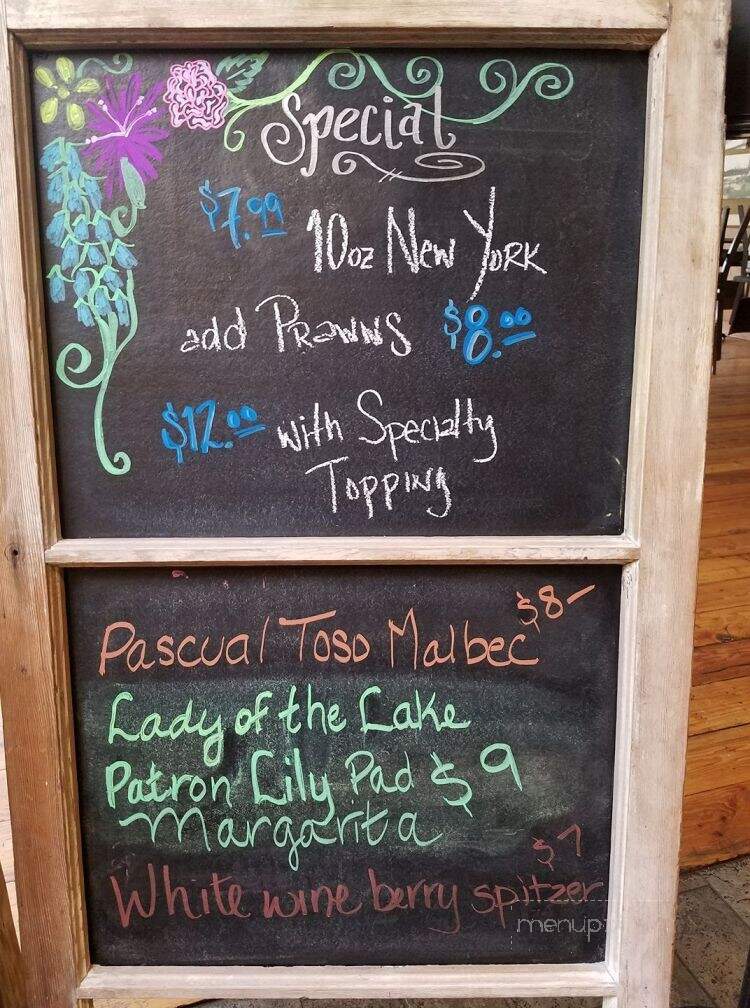 Special
$7.99 10oz New York
add Prawns $8.00
$12.00 with Specialty
Topping
$8-
Pascual Toso Malbec
Lady of the Lake
Patron Lily Pad $9
Margarita
$7
White wine berry spitzer
menup